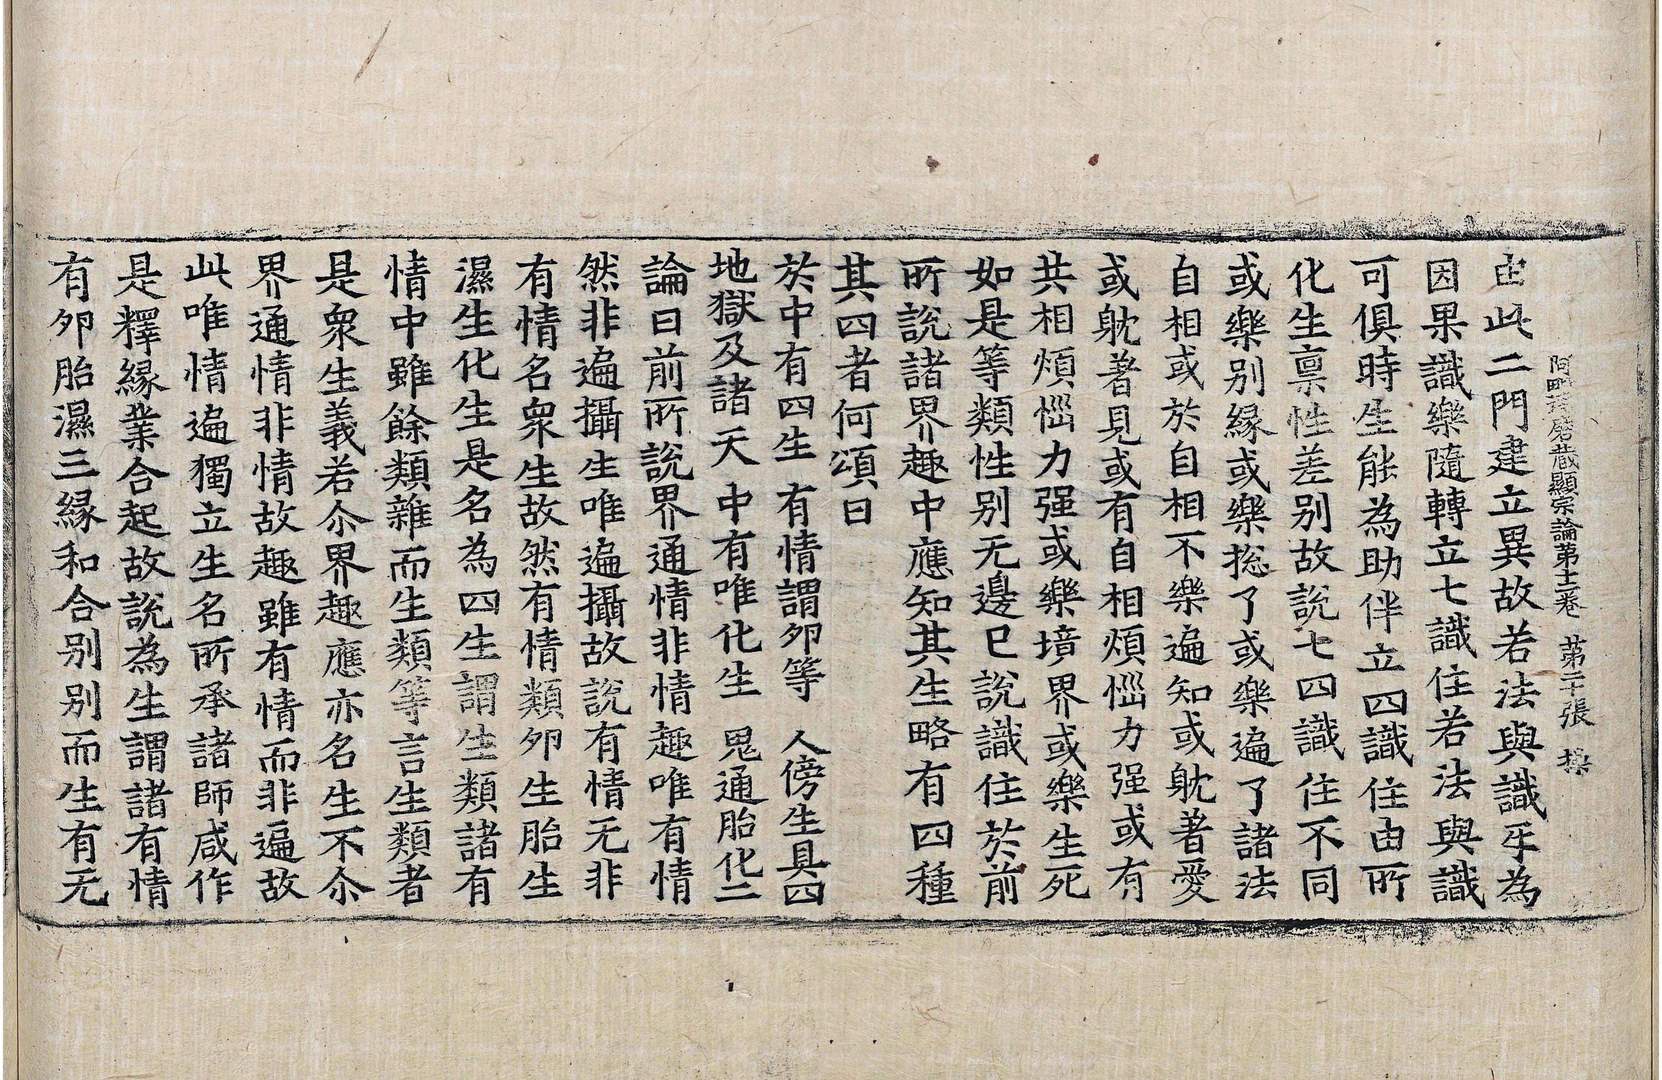 阿毗達磨藏顯宗論第十二卷 第二十張 操
由此二門建立異故若法與識牙為
因果識樂隨轉立七識住若法與識
可俱時生能為助伴立四識住由所
化生稟性差别故說七四識住不同
或樂别緣或樂捴了或樂遍了諸法
自相或於自相不樂遍知或躭著愛
或躭著見或有自相煩惱力强或有
共相煩惱力强或樂境界或樂生死
如是等類性别无邊已說識住於前
所說諸界趣中應知其生略有四種
其四者何頌曰
於中有四生 有情謂卵等 人傍生具四
地獄及諸天 中有唯化生 鬼通胎化二
論曰前所說界通情非情趣唯有情
然非遍攝生唯遍攝故說有情无非
有情名衆生故然有情類卵生胎生
濕生化生是名為四生謂生類諸有
情中雖餘類雜而生類等言生類者
是衆生義若尒界趣應亦名生不尒
界通情非情故趣雖有情而非遍故
此唯情遍獨立生名所承諸師咸作
是釋緣業合起故說為生謂諸有情
有卵胎濕三緣和合别别而生有无